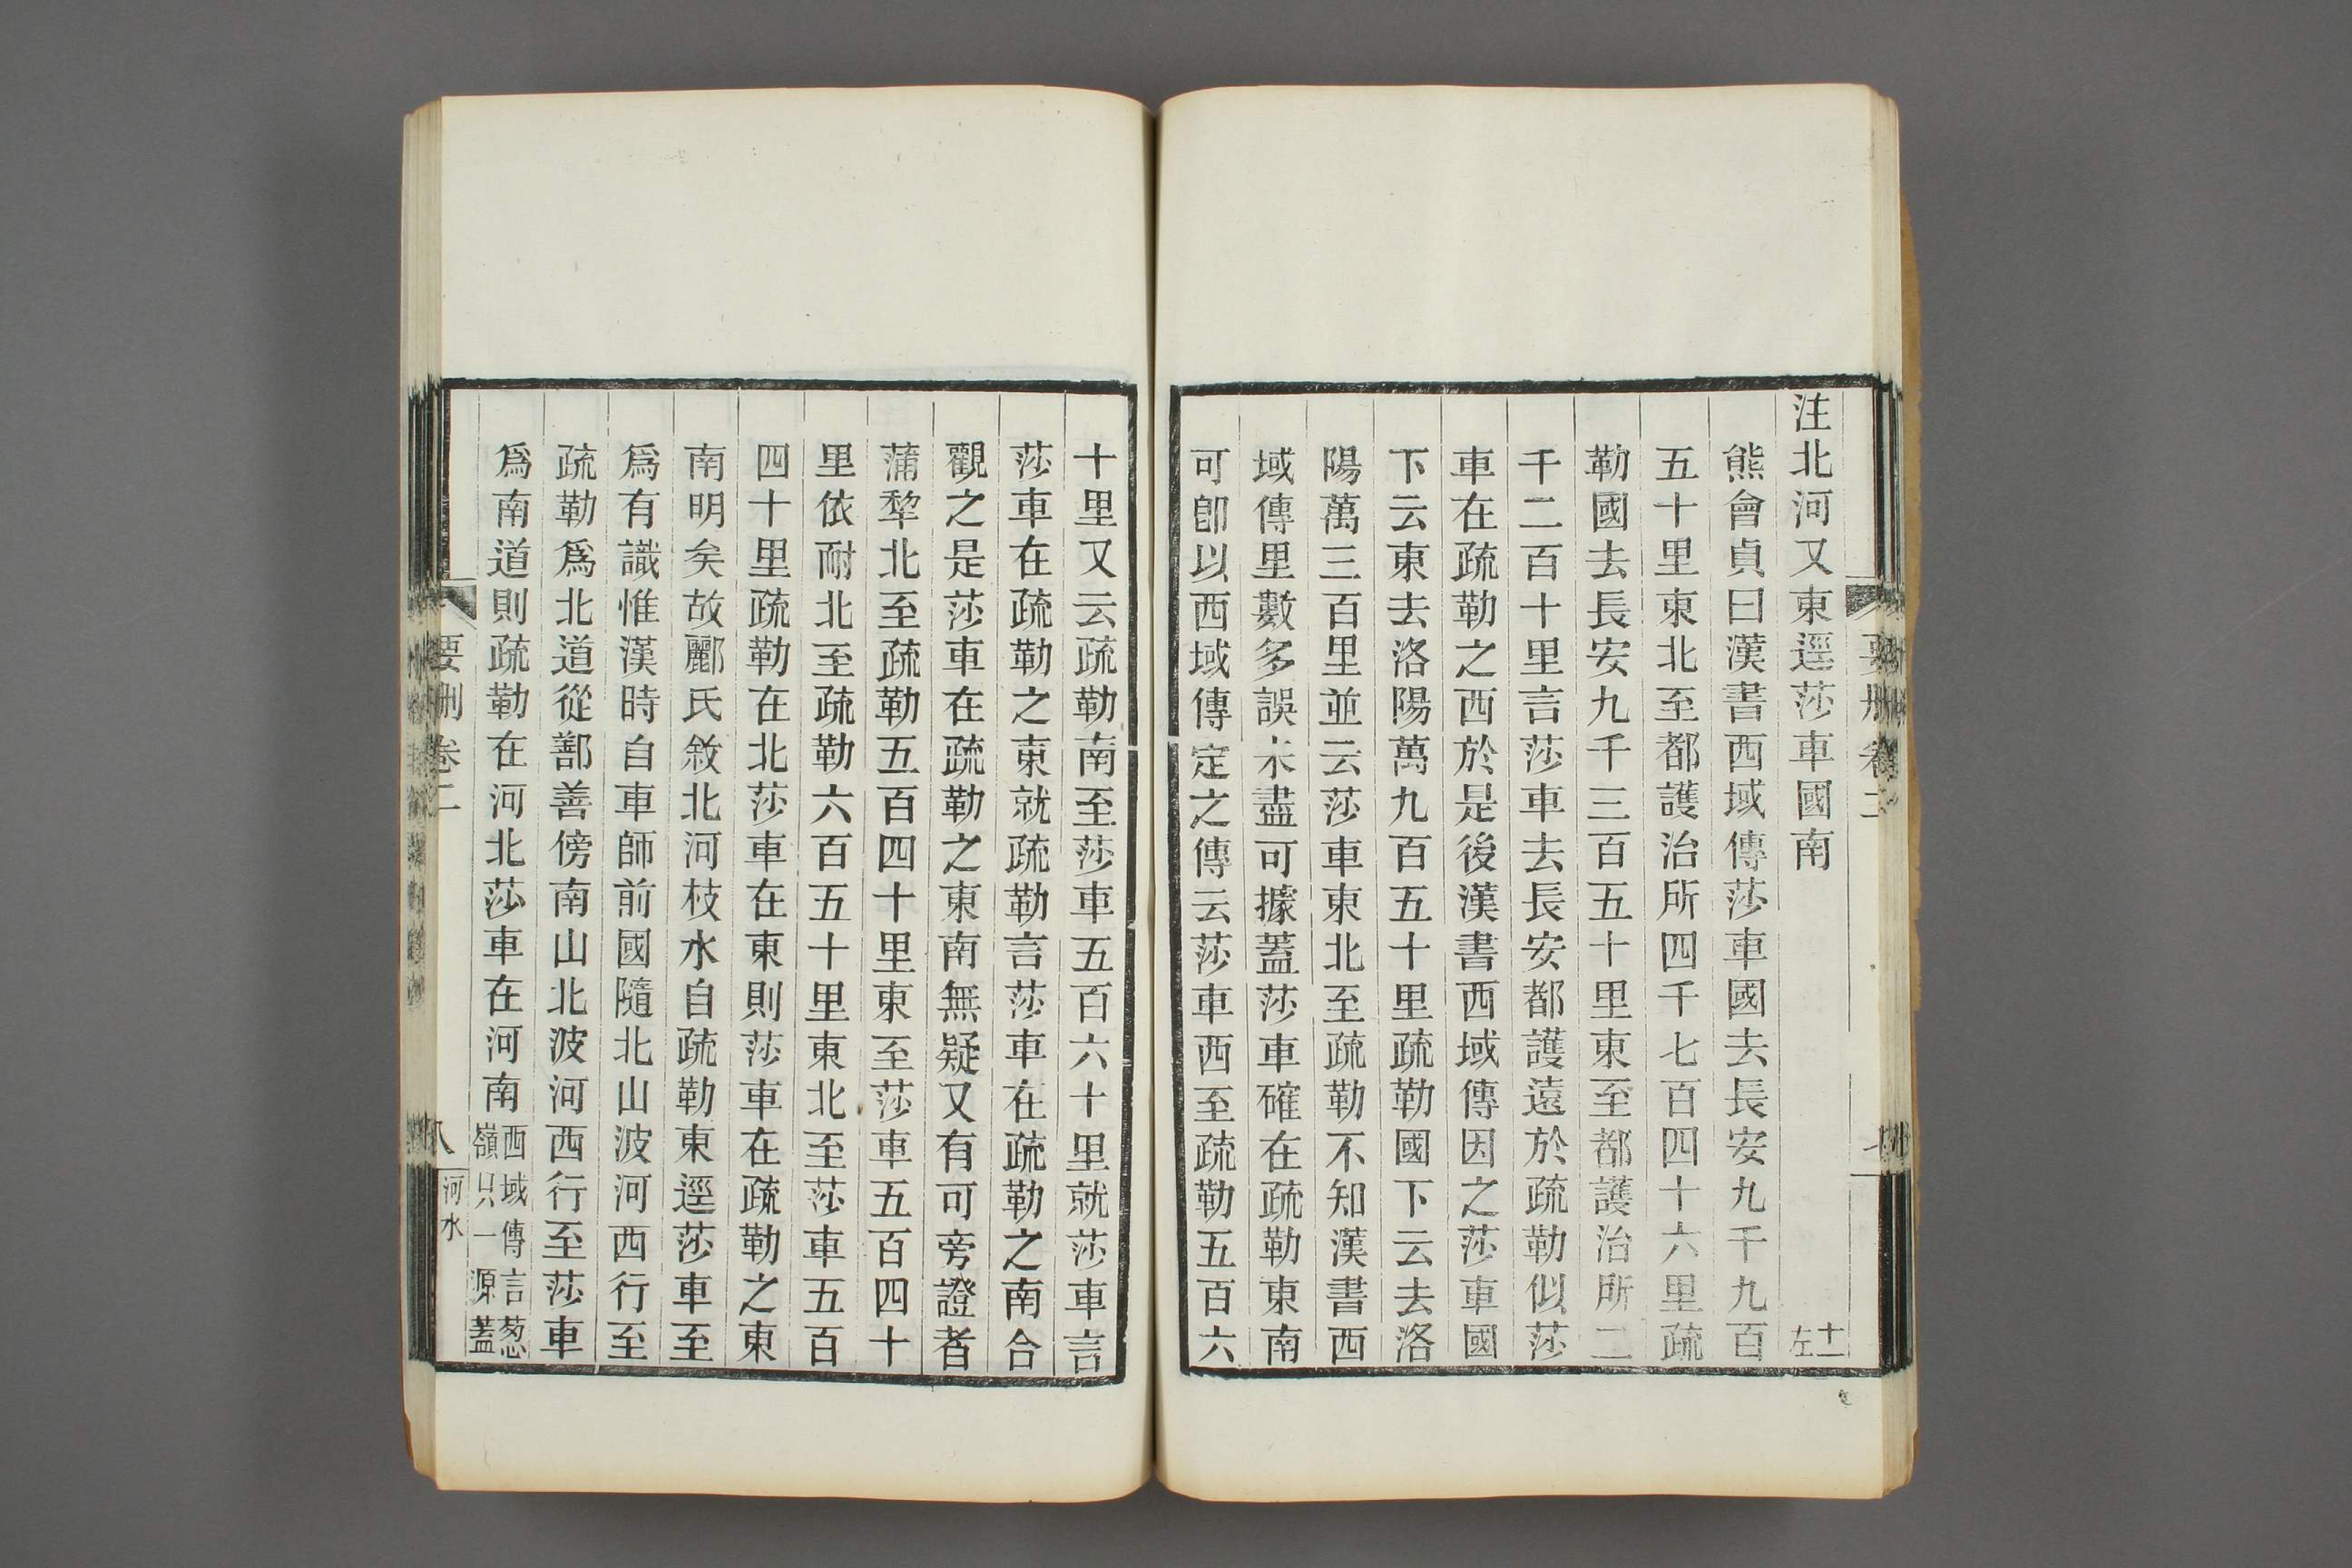 注北河又東逕莎車國南
十一左
熊會貞曰漢書西域傳莎車國去長安九千九百
五十里東北至都護治所四千七百四十六里疏
勒國去長安九千三百五十里東至都護治所二
千二百十里言莎車去長安都護遠於疏勒似莎
車在疏勒之西於是後漢書西域傳因之莎車國
下云東去洛陽萬九百五十里疏勒國下云去洛
陽萬三百里並云莎車東北至疏勒不知漢書西
域傳里數多誤未盡可據蓋莎車確在疏勒東南
可卽以西域傳定之傳云莎車西至疏勒五百六
十里又云疏勒南至莎車五百六十里就莎車言
莎車在疏勒之東就疏勒言莎車在疏勒之南合
觀之是莎車在疏勒之東南無疑又有可旁證者
蒲犂北至疏勒五百四十里東至莎車五百四十
里依耐北至疏勒六百五十里東北至莎車五百
四十里疏勒在北莎車在東則莎車在疏勒之東
南明矣故酈氏敘北河枝水自疏勒東逕莎車至
爲有識惟漢時自車師前國隨北山波河西行至
疏勒爲北道從鄯善傍南山北波河西行至莎車
爲南道則疏勒在河北莎車在河南西域傳言葱
嶺只一源蓋
要刪卷二
八
河水